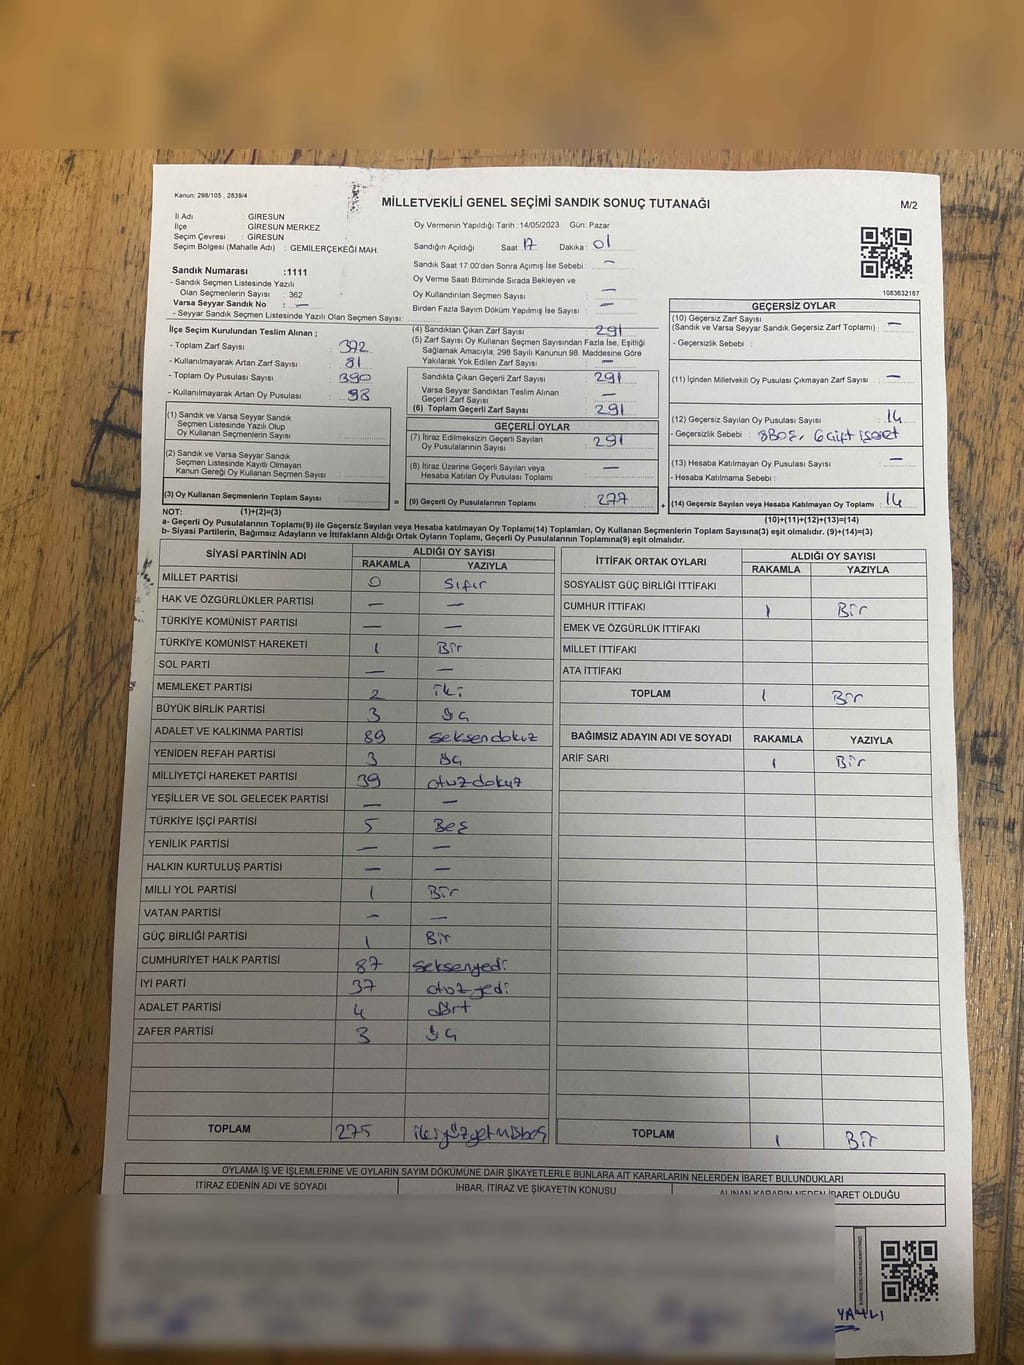 Kanun: 298/105 , 2839/4
MİLLETVEKİLİ GENEL SEÇİMİ SANDIK SONUÇ TUTANAĞI
M/2
İl Adı : GİRESUN
İlçe : GİRESUN MERKEZ
Seçim Çevresi : GİRESUN
Seçim Bölgesi (Mahalle Adı) : GEMİLERÇEKEĞİ MAH.
Oy Vermenin Yapıldığı Tarih : 14/05/2023 Gün: Pazar
Sandığın Açıldığı Saat 17 Dakika 01
Sandık Saat 17:00'den Sonra Açımış İse Sebebi : —
Oy Verme Saati Bitiminde Sırada Bekleyen ve
Oy Kullandırılan Seçmen Sayısı : —
Birden Fazla Sayım Döküm Yapılmış İse Sayısı : —
1083632187
Sandık Numarası :1111
- Sandık Seçmen Listesinde Yazılı
Olan Seçmenlerin Sayısı : 362
Varsa Seyyar Sandık No : —
- Seyyar Sandık Seçmen Listesinde Yazılı Olan Seçmen Sayısı:
İlçe Seçim Kurulundan Teslim Alınan ;
- Toplam Zarf Sayısı : 372
- Kullanılmayarak Artan Zarf Sayısı : 81
- Toplam Oy Pusulası Sayısı : 390
- Kullanılmayarak Artan Oy Pusulası Sayısı : 98
(1) Sandık ve Varsa Seyyar Sandık
Seçmen Listesinde Yazılı Olup
Oy Kullanan Seçmenlerin Sayısı :
(2) Sandık ve Varsa Seyyar Sandık
Seçmen Listesinde Kayıtlı Olmayan
Kanun Gereği Oy Kullanan Seçmen Sayısı :
(3) Oy Kullanan Seçmenlerin Toplam Sayısı : =
(4) Sandıktan Çıkan Zarf Sayısı : 291
(5) Zarf Sayısı Oy Kullanan Seçmen Sayısından Fazla İse, Eşitliği
Sağlamak Amacıyla, 298 Sayılı Kanunun 98. Maddesine Göre
Yakılarak Yok Edilen Zarf Sayısı : —
Sandıkta Çıkan Geçerli Zarf Sayısı : 291
Varsa Seyyar Sandıktan Teslim Alınan
Geçerli Zarf Sayısı : —
(6) Toplam Geçerli Zarf Sayısı : 291
GEÇERLİ OYLAR
(7) İtiraz Edilmeksizin Geçerli Sayılan
Oy Pusulalarının Sayısı : 291
(8) İtiraz Üzerine Geçerli Sayılan veya
Hesaba Katılan Oy Pusulası Toplamı : —
(9) Geçerli Oy Pusulalarının Toplamı : 277 +
GEÇERSİZ OYLAR
(10) Geçersiz Zarf Sayısı
(Sandık ve Varsa Seyyar Sandık Geçersiz Zarf Toplamı) : —
- Geçersizlik Sebebi :
(11) İçinden Milletvekili Oy Pusulası Çıkmayan Zarf Sayısı : —
(12) Geçersiz Sayılan Oy Pusulası Sayısı : 14
- Geçersizlik Sebebi : 8 BOŞ, 6 çift işaret
(13) Hesaba Katılmayan Oy Pusulası Sayısı : —
- Hesaba Katılmama Sebebi :
(14) Geçersiz Sayılan veya Hesaba Katılmayan Oy Toplamı : 14
NOT: (1)+(2)=(3)
(10)+(11)+(12)+(13)=(14)
a- Geçerli Oy Pusulalarının Toplamı(9) ile Geçersiz Sayılan veya Hesaba katılmayan Oy Toplamı(14) Toplamları, Oy Kullanan Seçmenlerin Toplam Sayısına(3) eşit olmalıdır. (9)+(14)=(3)
b- Siyasi Partilerin, Bağımsız Adayların ve İttifakların Aldığı Ortak Oyların Toplamı, Geçerli Oy Pusulalarının Toplamına(9) eşit olmalıdır.
SİYASİ PARTİNİN ADI ALDIĞI OY SAYISI
RAKAMLA YAZIYLA
MİLLET PARTİSİ 0 sıfır
HAK VE ÖZGÜRLÜKLER PARTİSİ — —
TÜRKİYE KOMÜNİST PARTİSİ — —
TÜRKİYE KOMÜNİST HAREKETİ 1 Bir
SOL PARTİ — —
MEMLEKET PARTİSİ 2 iki
BÜYÜK BİRLİK PARTİSİ 3 üç
ADALET VE KALKINMA PARTİSİ 89 seksendokuz
YENİDEN REFAH PARTİSİ 3 üç
MİLLİYETÇİ HAREKET PARTİSİ 39 otuzdokuz
YEŞİLLER VE SOL GELECEK PARTİSİ — —
TÜRKİYE İŞÇİ PARTİSİ 5 Beş
YENİLİK PARTİSİ — —
HALKIN KURTULUŞ PARTİSİ — —
MİLLİ YOL PARTİSİ 1 Bir
VATAN PARTİSİ – —
GÜÇ BİRLİĞİ PARTİSİ 1 Bir
CUMHURİYET HALK PARTİSİ 87 seksenyedi
İYİ PARTİ 37 otuzyedi
ADALET PARTİSİ 4 dört
ZAFER PARTİSİ 3 üç
TOPLAM 275 ikiyüzyetmişbeş
İTTİFAK ORTAK OYLARI ALDIĞI OY SAYISI
RAKAMLA YAZIYLA
SOSYALİST GÜÇ BİRLİĞİ İTTİFAKI
CUMHUR İTTİFAKI 1 Bir
EMEK VE ÖZGÜRLÜK İTTİFAKI
MİLLET İTTİFAKI
ATA İTTİFAKI
TOPLAM 1 Bir
BAĞIMSIZ ADAYIN ADI VE SOYADI RAKAMLA YAZIYLA
ARİF SARI 1 Bir
TOPLAM 1 Bir
OYLAMA İŞ VE İŞLEMLERİNE VE OYLARIN SAYIM DÖKÜMÜNE DAİR ŞİKAYETLERLE BUNLARA AİT KARARLARIN NELERDEN İBARET BULUNDUKLARI
İTİRAZ EDENİN ADI VE SOYADI İHBAR, İTİRAZ VE ŞİKAYETİN KONUSU ALINAN KARARIN NEDEN İBARET OLDUĞU